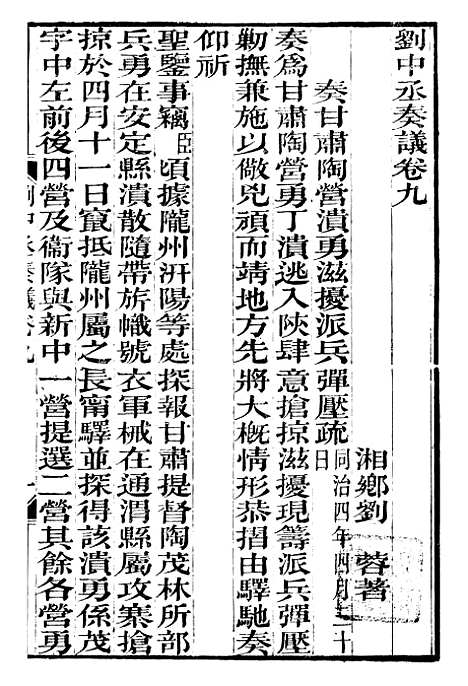 劉中丞奏議卷九
湘鄉劉 蓉著
奏甘肅陶營潰勇滋擾派兵彈壓疏 同治四年四月二十日
奏爲甘肅陶營勇丁潰逃入陝肆意搶掠滋擾現籌派兵彈壓
勦撫兼施以儆兇頑而靖地方先將大槪情形恭摺由驛馳奏
仰祈
聖鑒事竊臣頃據隴州汧陽等處探報甘肅提督陶茂林所部
兵勇在安定縣潰散隨帶旂幟號衣軍械在通渭縣屬攻寨搶
掠於四月十一日竄抵隴州屬之長甯驛並探得該潰勇係茂
字中左前後四營及衞隊與新中一營提選二營其餘各營勇
劉中丞奏議卷九
一